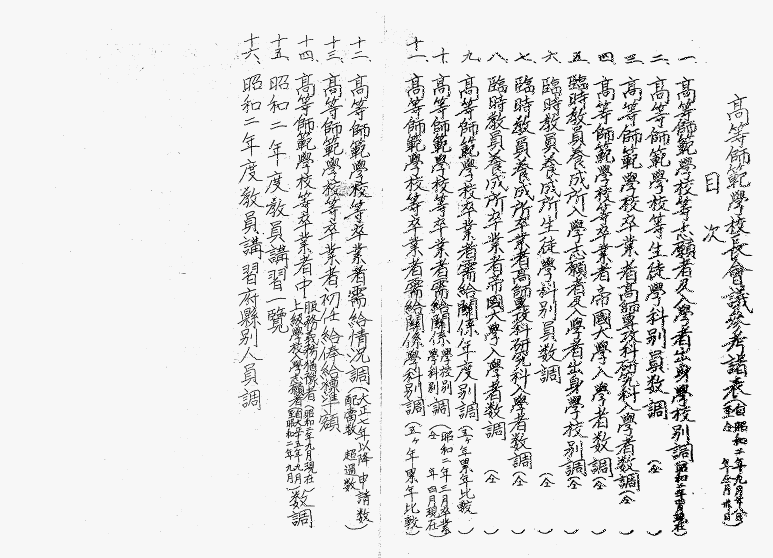 高等師範學校長會議參考諸表
目次
一、高等師範學校等志願者及入學者出身學校別調
二、高等師範學校等生徒學科別員數調(仝)
三、高等師範學校卒業者高師專攻科研究科入學者數調(仝)
四、高等師範學校等卒業者帝國大學入學者數調(仝)
五、臨時教員養成所入學志願者及入學者出身學校別調(仝)
六、臨時教員養成所生徒學科別員數調
七、臨時教員養成所卒業者高師專攻科研究科入學者數調(仝)
八、臨時教員養成所卒業者帝國大學入學者數調(仝)
九、高等師範學校卒業者需給關係年度別調(五ヶ年累年比較)
十、高等師範學校等卒業者需給關係學校別學科別調(昭和二年三月卒業 仝年四月現在)
十一、高等師範學校等卒業者需給關係學科別調(五ヶ年累年比較)
十二、高等師範學校等卒業者需給情況調(大正七年以降申請數配當數超過數)
十三、高等師範學校等卒業者初任給俸給標準額
十四、高等師範學校等卒業者中服務義務猶豫者(昭和二年九月現在)上級學校入學志願者(自大正十五年九月至昭和二年九月)數調
十五、昭和二年度教員講習一覽
十六、昭和二年度教員講習府縣別人員調